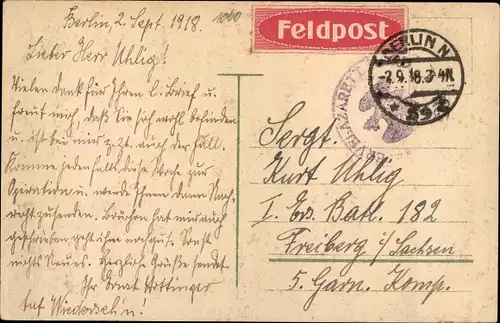 Berlin, 2. Sept. 1918.
1000
Feldpost
Lieber Herr Uhlig!
Vielen Dank für Ihren l. Brief u.
freut mich, daß Sie sich wohl befinden
u. ist bei mir z.zt. auch der Fall.
Komme jedenfalls diese Woche zur
Operation u. werde Ihnen dann Nach-
richt zusenden. Bruchon hat mir auch
geschrieben geht ihm Sonst
nichts Neues. Herzliche Grüße sendet
Ihr Ernst Hottinger
Auf Wiedersehn!
BERLIN N
-2.9.18.3-4N.
Sergt.
Kurt Uhlig
I. Ers. Batl. 182
Freiberg i/Sachsen
5. Garn. Komp.